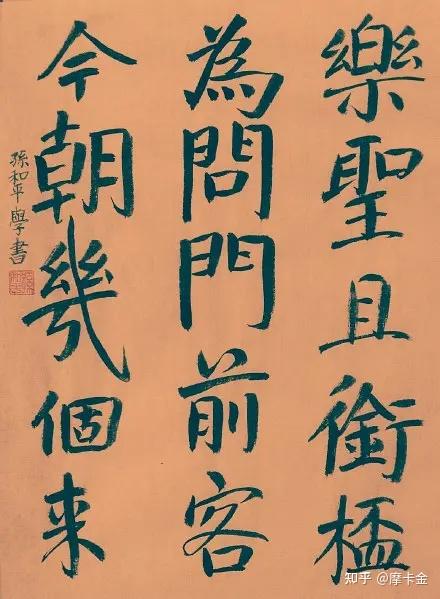 樂聖且銜桮
為問門前客
今朝幾個来
孫和平學書
知乎 @摩卡金